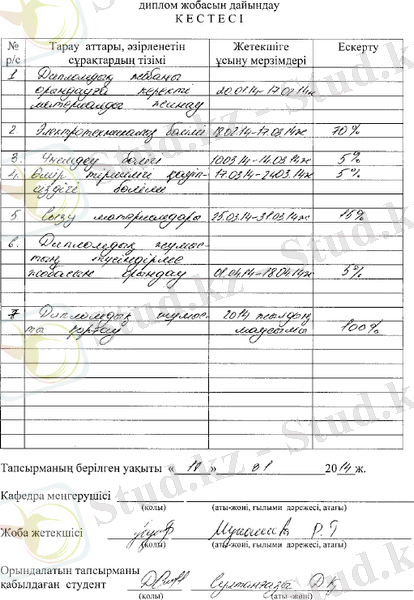 диплом жобасын дайындау
К Е С Т Е С І
№ р/с Тарау аттары, әзірленетін сұрақтардың тізімі Жетекшіге ұсыну мерзімдері Ескерту
1 Дипломдық жобаны
орындауға керекті 20.01.14-17.02.14ж
материалды жинау
2 Электротехникалық бөлімі 18.02.14-17.03.14ж 70%
3. Үнемдеу бөлімі 10.03.14-14.03.14ж 5%
4. Өмір тіршілігі қауіп- 17.03.14-24.03.14ж 5%
сіздігі бөлімі
5 Сызу материалдары 25.03.14-31.03.14ж 15%
6. Дипломдық жұмыс-
тың түсіндірме
жобасын орындау 01.04.14-18.04.14ж 5%
7 Дипломдық жұмыс- 2014 жылдың
ты қорғау маусымы 100%
Тапсырманың берілген уақыты « » 01 2014 ж.
Кафедра меңгерушісі
(қолы) (аты-жөні, ғылыми дәрежесі, атағы)
Жоба жетекшісі Р.Т
(қолы) (аты-жөні, ғылыми дәрежесі, атағы)
Орындалатын тапсырманы
қабылдаған студент
(қолы) (аты -жөні)
Stud.kz - Stud.kz